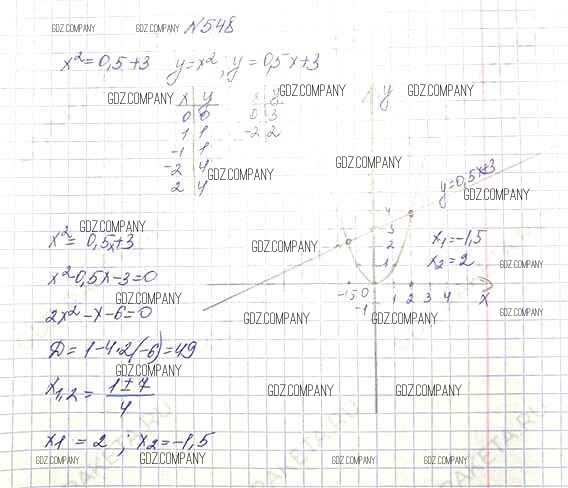 GDZ.COMPANY GDZ.COMPANY N548
x²=0,5+3 y=x², y=0,5x+3
GDZ.COMPANY GDZ.COMPANY GDZ.COMPANY
x | y x | y y
0 | 0 0 | 3
1 | 1 -2 | 2
-1 | 1
-2 | 4
2 | 4
GDZ.COMPANY GDZ.COMPANY
y=0,5x+3
GDZ.COMPANY
4
3
2
1
GDZ.COMPANY
x²=0,5x+3
GDZ.COMPANY
x₁=-1,5
x₂=2
GDZ.COMPANY
x²-0,5x-3=0
-1,5 0 1 2 3 4 x
-1
GDZ.COMPANY GDZ.COMPANY GDZ.COMPANY GDZ.COMPANY
2x²-x-6=0
D=1-4·2(-6)=49
GDZ.COMPANY GDZ.COMPANY GDZ.COMPANY
x₁,₂= (1±7)/4
x1=2; x₂=-1,5
GDZ.COMPANY GDZ.COMPANY GDZ.COMPANY GDZ.COMPANY